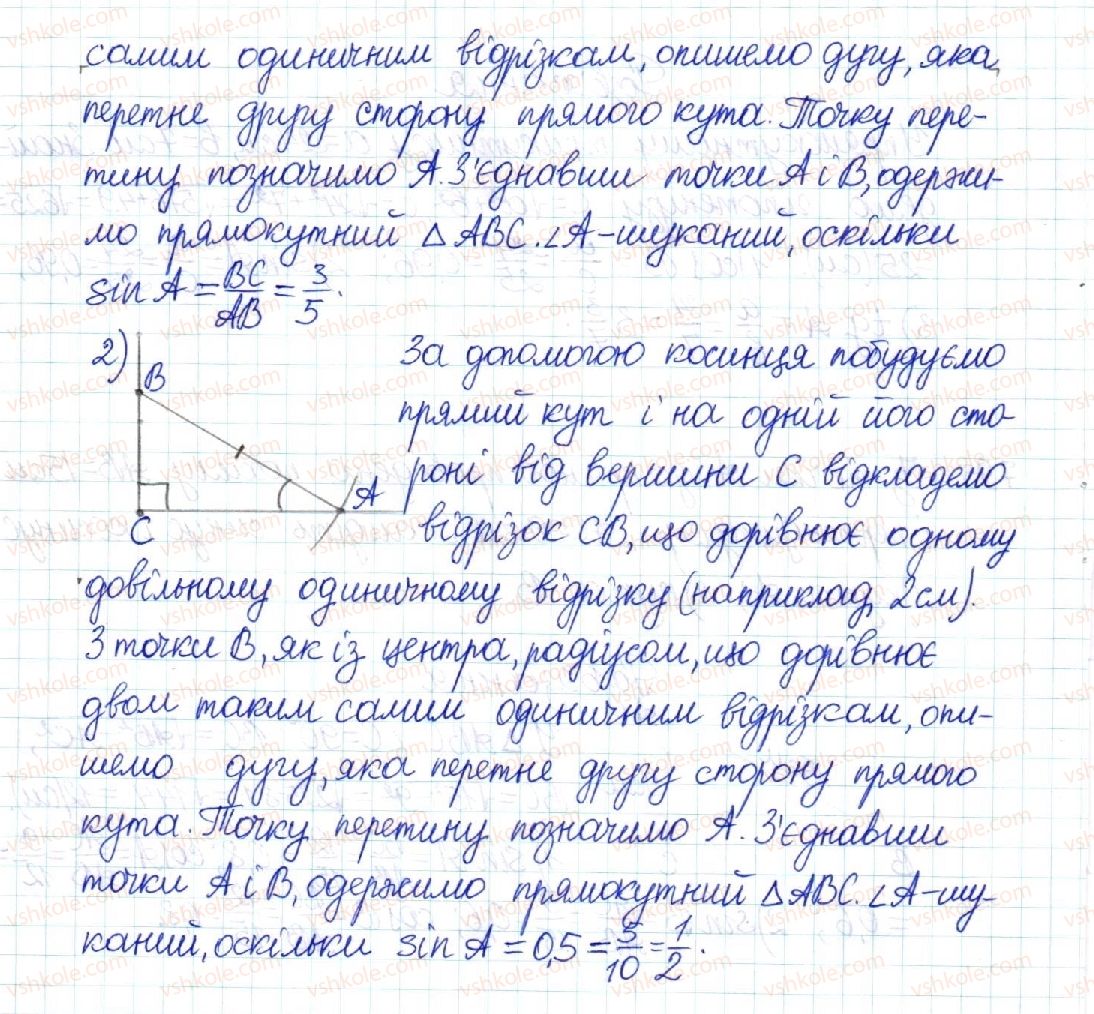 самим одиничним відрізкам, опишемо дугу, яка
перетне другу сторону прямого кута. Точку пере-
тину позначимо А. З'єднавши точки А і В, одержи-
мо прямокутний △ АВС. ∠А – шуканий, оскільки
sin A = BC/AB = 3/5.
2) За допомогою косинця побудуємо
прямий кут і на одній його сто-
роні від вершини С відкладемо
відрізок СВ, що дорівнює одному
довільному одиничному відрізку (наприклад, 2см).
З точки В, як із центра, радіусом, що дорівнює
двом таким самим одиничним відрізкам, опи-
шемо дугу, яка перетне другу сторону прямого
кута. Точку перетину позначимо А. З'єднавши
точки А і В, одержимо прямокутний △ АВС. ∠А – шу-
каний, оскільки sin A = 0,5 = 5/10 = 1/2.
B
A
C
vshkole.com